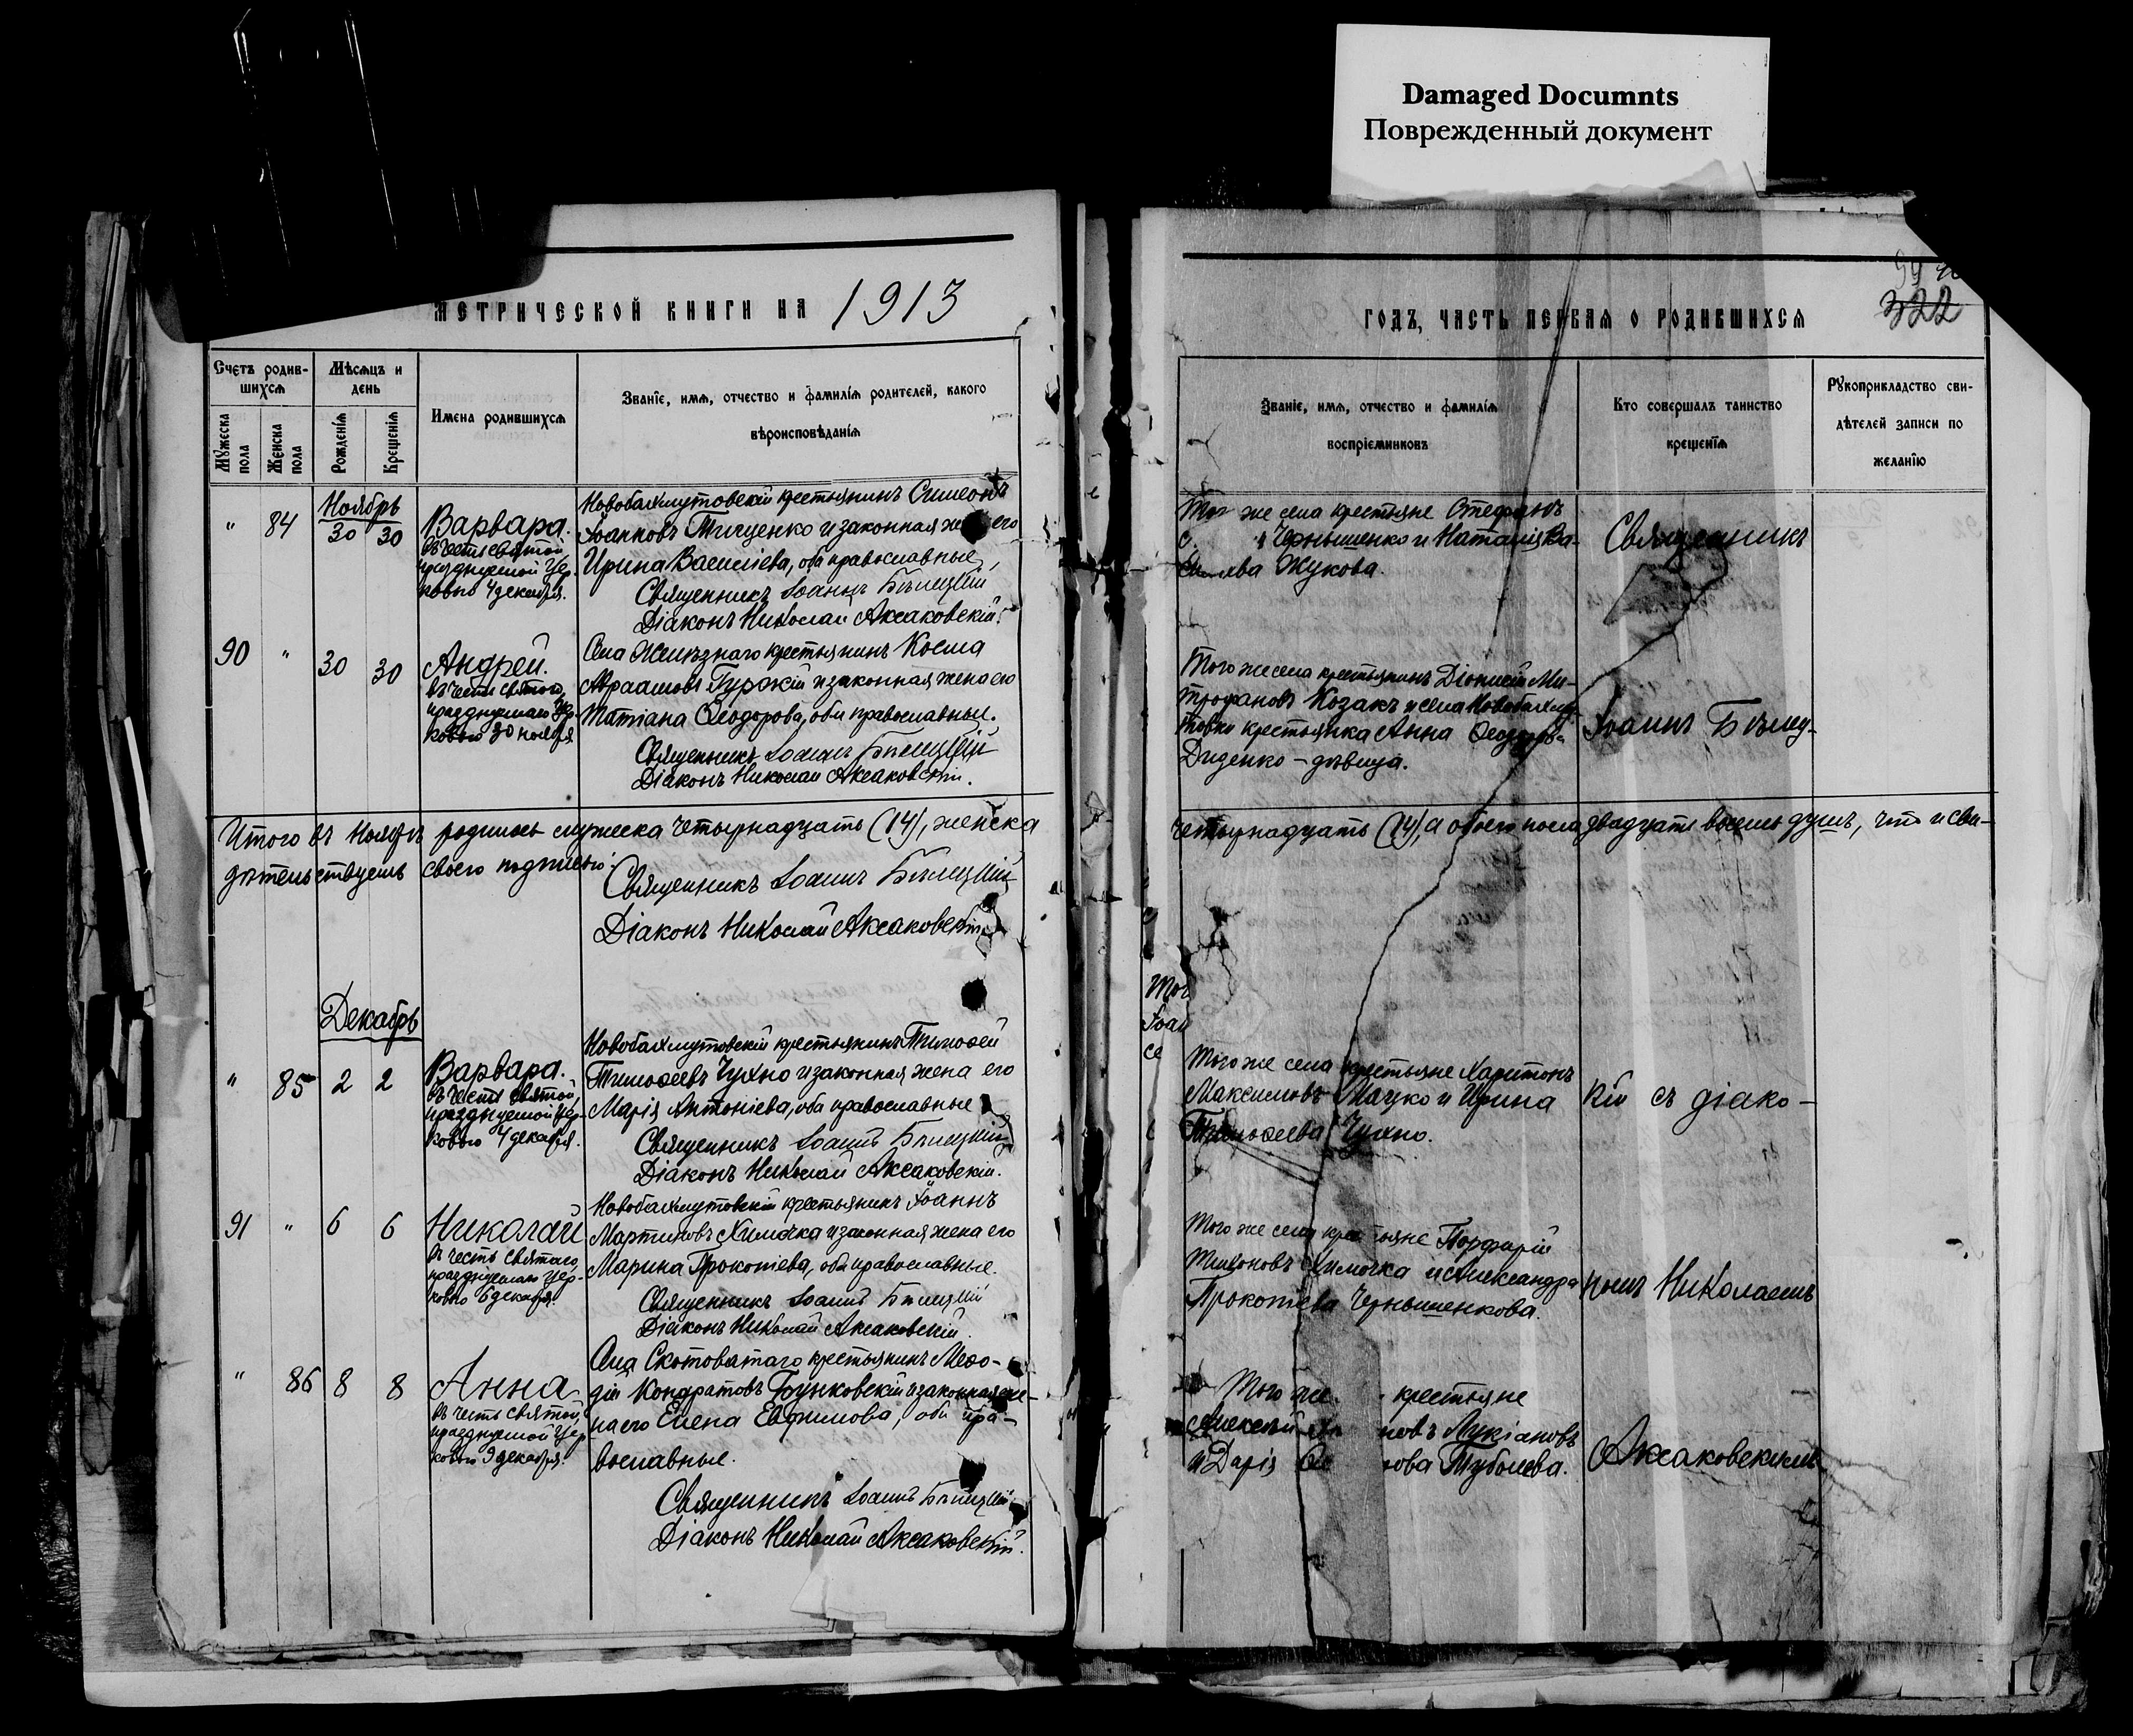 Damaged Documnts
Поврежденный документ
МЕТРИЧЕСКОЙ КНИГИ НА 1913
Счетъ родив-
шихся
Мѣсяцъ и
день
Мужеска
пола
Женска
пола
Рожденія
Крещенія
Имена родившихся
Званіе, имя, отчество и фамилія родителей, какого
вѣроисповѣданія
Ноябрь
" 84 30 30
Варвара.
въ честь святой,
празднуемой Цер-
ковью 4 декабря.
Новобахмутовскій крестьянинъ Симеонъ
Іоанновъ Тищенко и законная жена его
Ирина Василіева, оба православные,
Священникъ Іоаннъ Бѣлицкій
Діаконъ Николай Аксаковскій.
90 " 30 30
Андрей.
въ честь святого,
празднуемаго Цер-
ковью 30 ноября
Села Желѣзнаго крестьянинъ Косма
Авраамовъ Гурскій и законная жена его
Татіана Ѳеодорова, оба православные.
Священникъ Іоаннъ Бѣлицкій
Діаконъ Николай Аксаковскій.
Итого въ Ноябрѣ родилось мужеска четырнадцать (14), женска
дѣтельствуемъ своею подписью:
Священникъ Іоаннъ Бѣлицкій
Діаконъ Николай Аксаковскій
Декабрь
" 85 2 2
Варвара.
въ честь святой,
празднуемой Цер-
ковью 4 декабря.
Новобахмутовскій крестьянинъ Тимоѳей
Тимоѳеевъ Чухно и законная жена его
Марія Антоніева, оба православные
Священникъ Іоаннъ Бѣлицкій
Діаконъ Николай Аксаковскій.
91 " 6 6
Николай
въ честь святаго,
празднуемаго Цер-
ковью 6 декабря.
Новобахмутовскій крестьянинъ Іоаннъ
Мартиновъ Химочка и законная жена его
Марина Прокопіева, оба православные.
Священникъ Іоаннъ Бѣлицкій
Діаконъ Николай Аксаковскій.
" 86 8 8
Анна
въ честь святой,
празднуемой Цер
ковью 9 декабря.
Села Скотоватаго крестьянинъ Меѳо-
дій Кондратовъ Бунковскій и законная же-
на его Елена Евфимова, оба пра-
вославные.
Священникъ Іоаннъ Бѣлицкій
Діаконъ Николай Аксаковскій.
ГОДЪ, ЧАСТЬ ПЕРВАЯ О РОДИВШИХСЯ
322
Званіе, имя, отчество и фамилія
воспріемниковъ
Кто совершалъ таинство
крещенія
Рукоприкладство сви-
дѣтелей записи по
желанію
же села крестьяне Стефанъ
Чернышенко и Наталія Ва-
Жукова.
Того же села крестьянинъ Діонисій Ми-
трофановъ Козакъ и села Новобахму-
товки крестьянка Анна Ѳеодорова
Диденко – дѣвица.
четырнадцать (14), а обоего пола двадцать восемь душъ, что и сви-
Того же села крестьяне Харитонъ
Максимовъ Мацко и Ирина
Тимоѳеева Чухно.
Того же села крестьяне Порфирій
Тихоновъ Химочка и Александра
Прокопіева Чернышенкова.
Того же крестьяне
Алексѣй новъ Лукіановъ
и Дарія рова Туболева.
Священникъ
Іоаннъ Бѣлиц-
кій съ діако-
номъ Николаемъ
Аксаковскимъ